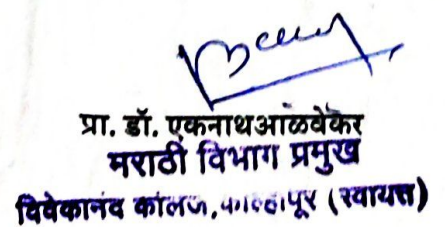 प्रा. डॉ. एकनाथआळवेकर
मराठी विभाग प्रमुख
विवेकानंद कॉलेज, कोल्हापूर (स्वायत्त)